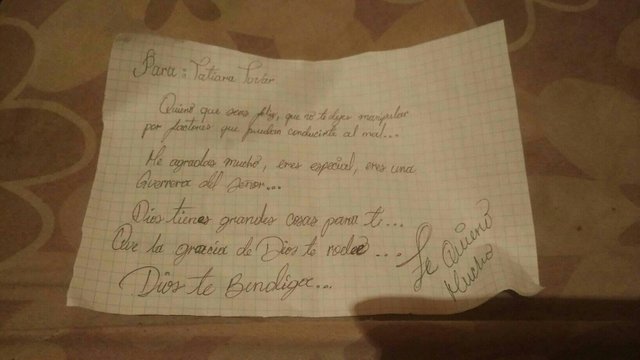 Para: Tatiana Tovar
Quiero que seas feliz, que no te dejes manipular
por factores que puedan conducirte al mal...
Me agradas mucho, eres especial, eres una
Guerrera del Señor...
Dios tienes grandes cosas para ti...
Que la gracia de Dios te rodee...
Dios te Bendiga...
Te Quiero
Mucho